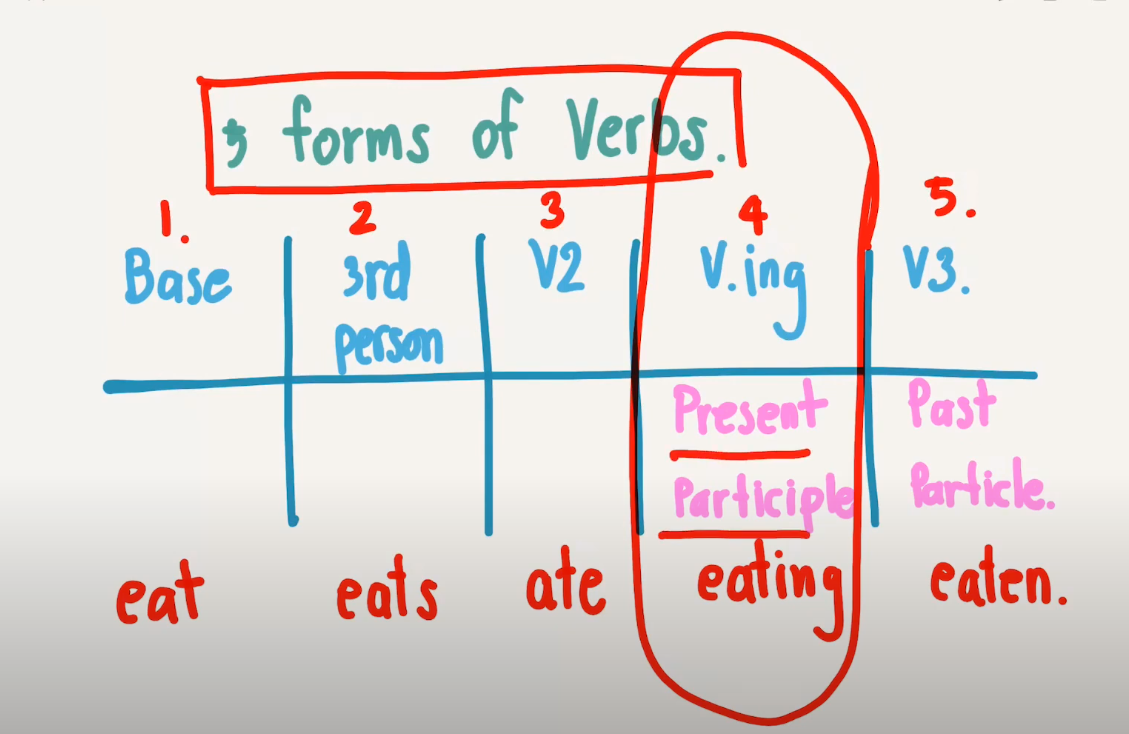 5 forms of Verbs.
1. 2 3 4 5.
Base 3rd person V2 V.ing V3.
Present Participle Past Particle.
eat eats ate eating eaten.